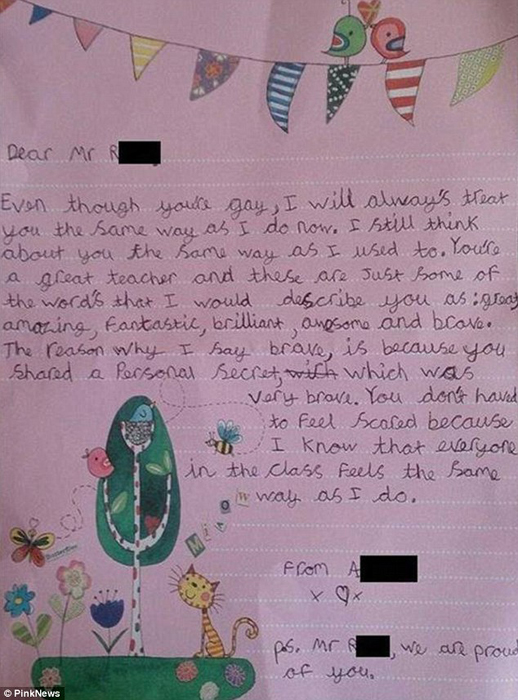 Dear Mr R
Even though you're gay, I will always's treat
you the same way as I do now. I still think
about you the same way as I used to. You're
a great teacher and these are just some of
the word's that I would describe you as: great
amazing, fantastic, brilliant, awsome and brave.
The reason why I say brave, is because you
shared a Personal secret, with which was
very brave. You don't haved
to feel scared because
I know that everyone
in the class feels the same
way as I do.
Miaow
From A
x ♡ x
ps. Mr R, we are proud
of you.
© PinkNews